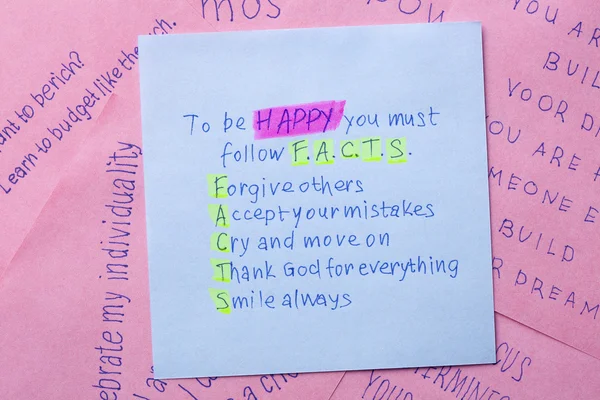 To be HAPPY you must
follow F.A.C.T.S.
Forgive others
Accept your mistakes
Cry and move on
Thank God for everything
Smile always
Learn to budget like the rich.
my individuality
YOU ARE
BUIL
YOU ARE
BUILD
DREAM
YOUR